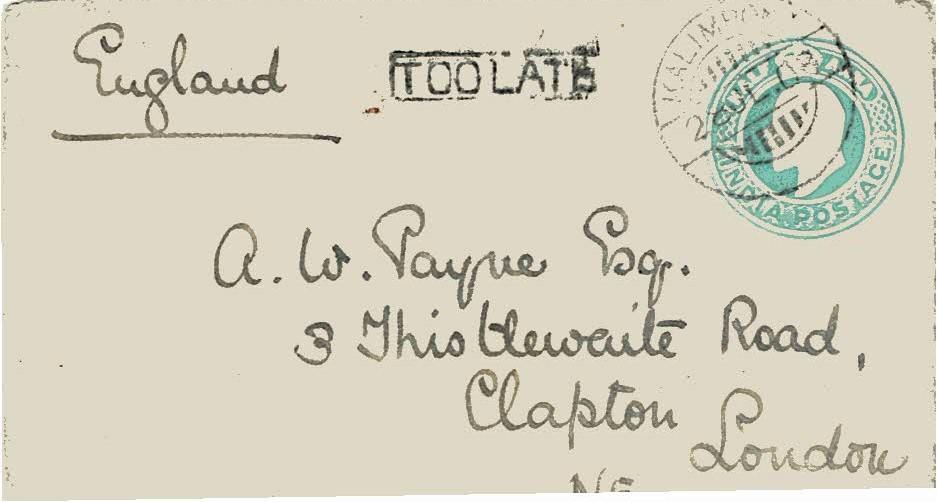 England
TOO LATE
KALIMPONG
INDIA POSTAGE
A. W. Payne Esq.
3 Thistlewaite Road,
Clapton
London
NE